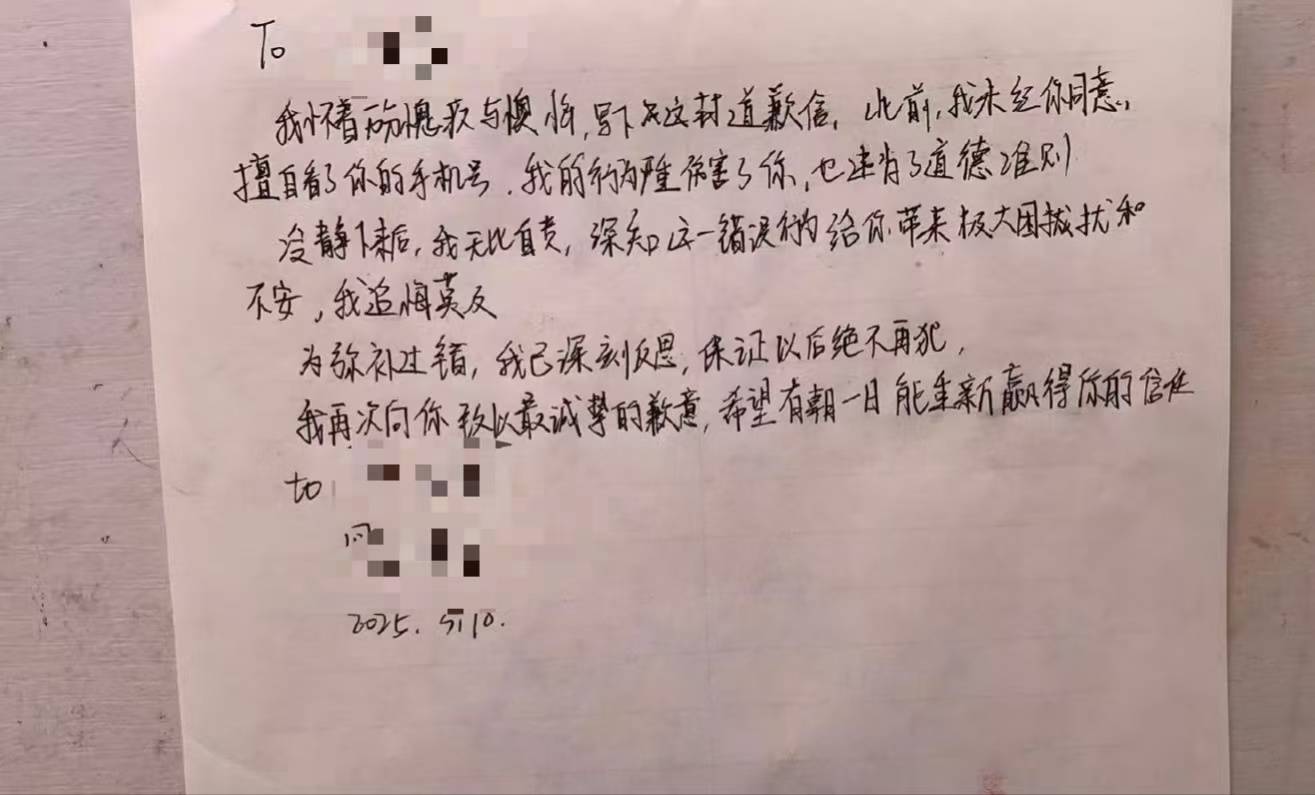 To
我怀着万分愧疚与懊悔,写下这封道歉信,此前,我未经你同意,
擅自看了你的手机号,我的行为严重伤害了你,也违背了道德准则
冷静下来后,我无比自责,深知这一错误行为给你带来极大困扰和
不安,我追悔莫及
为弥补过错,我已深刻反思,保证以后绝不再犯,
我再次向你致以最诚挚的歉意,希望有朝一日能重新赢得你的信任
to
2025.